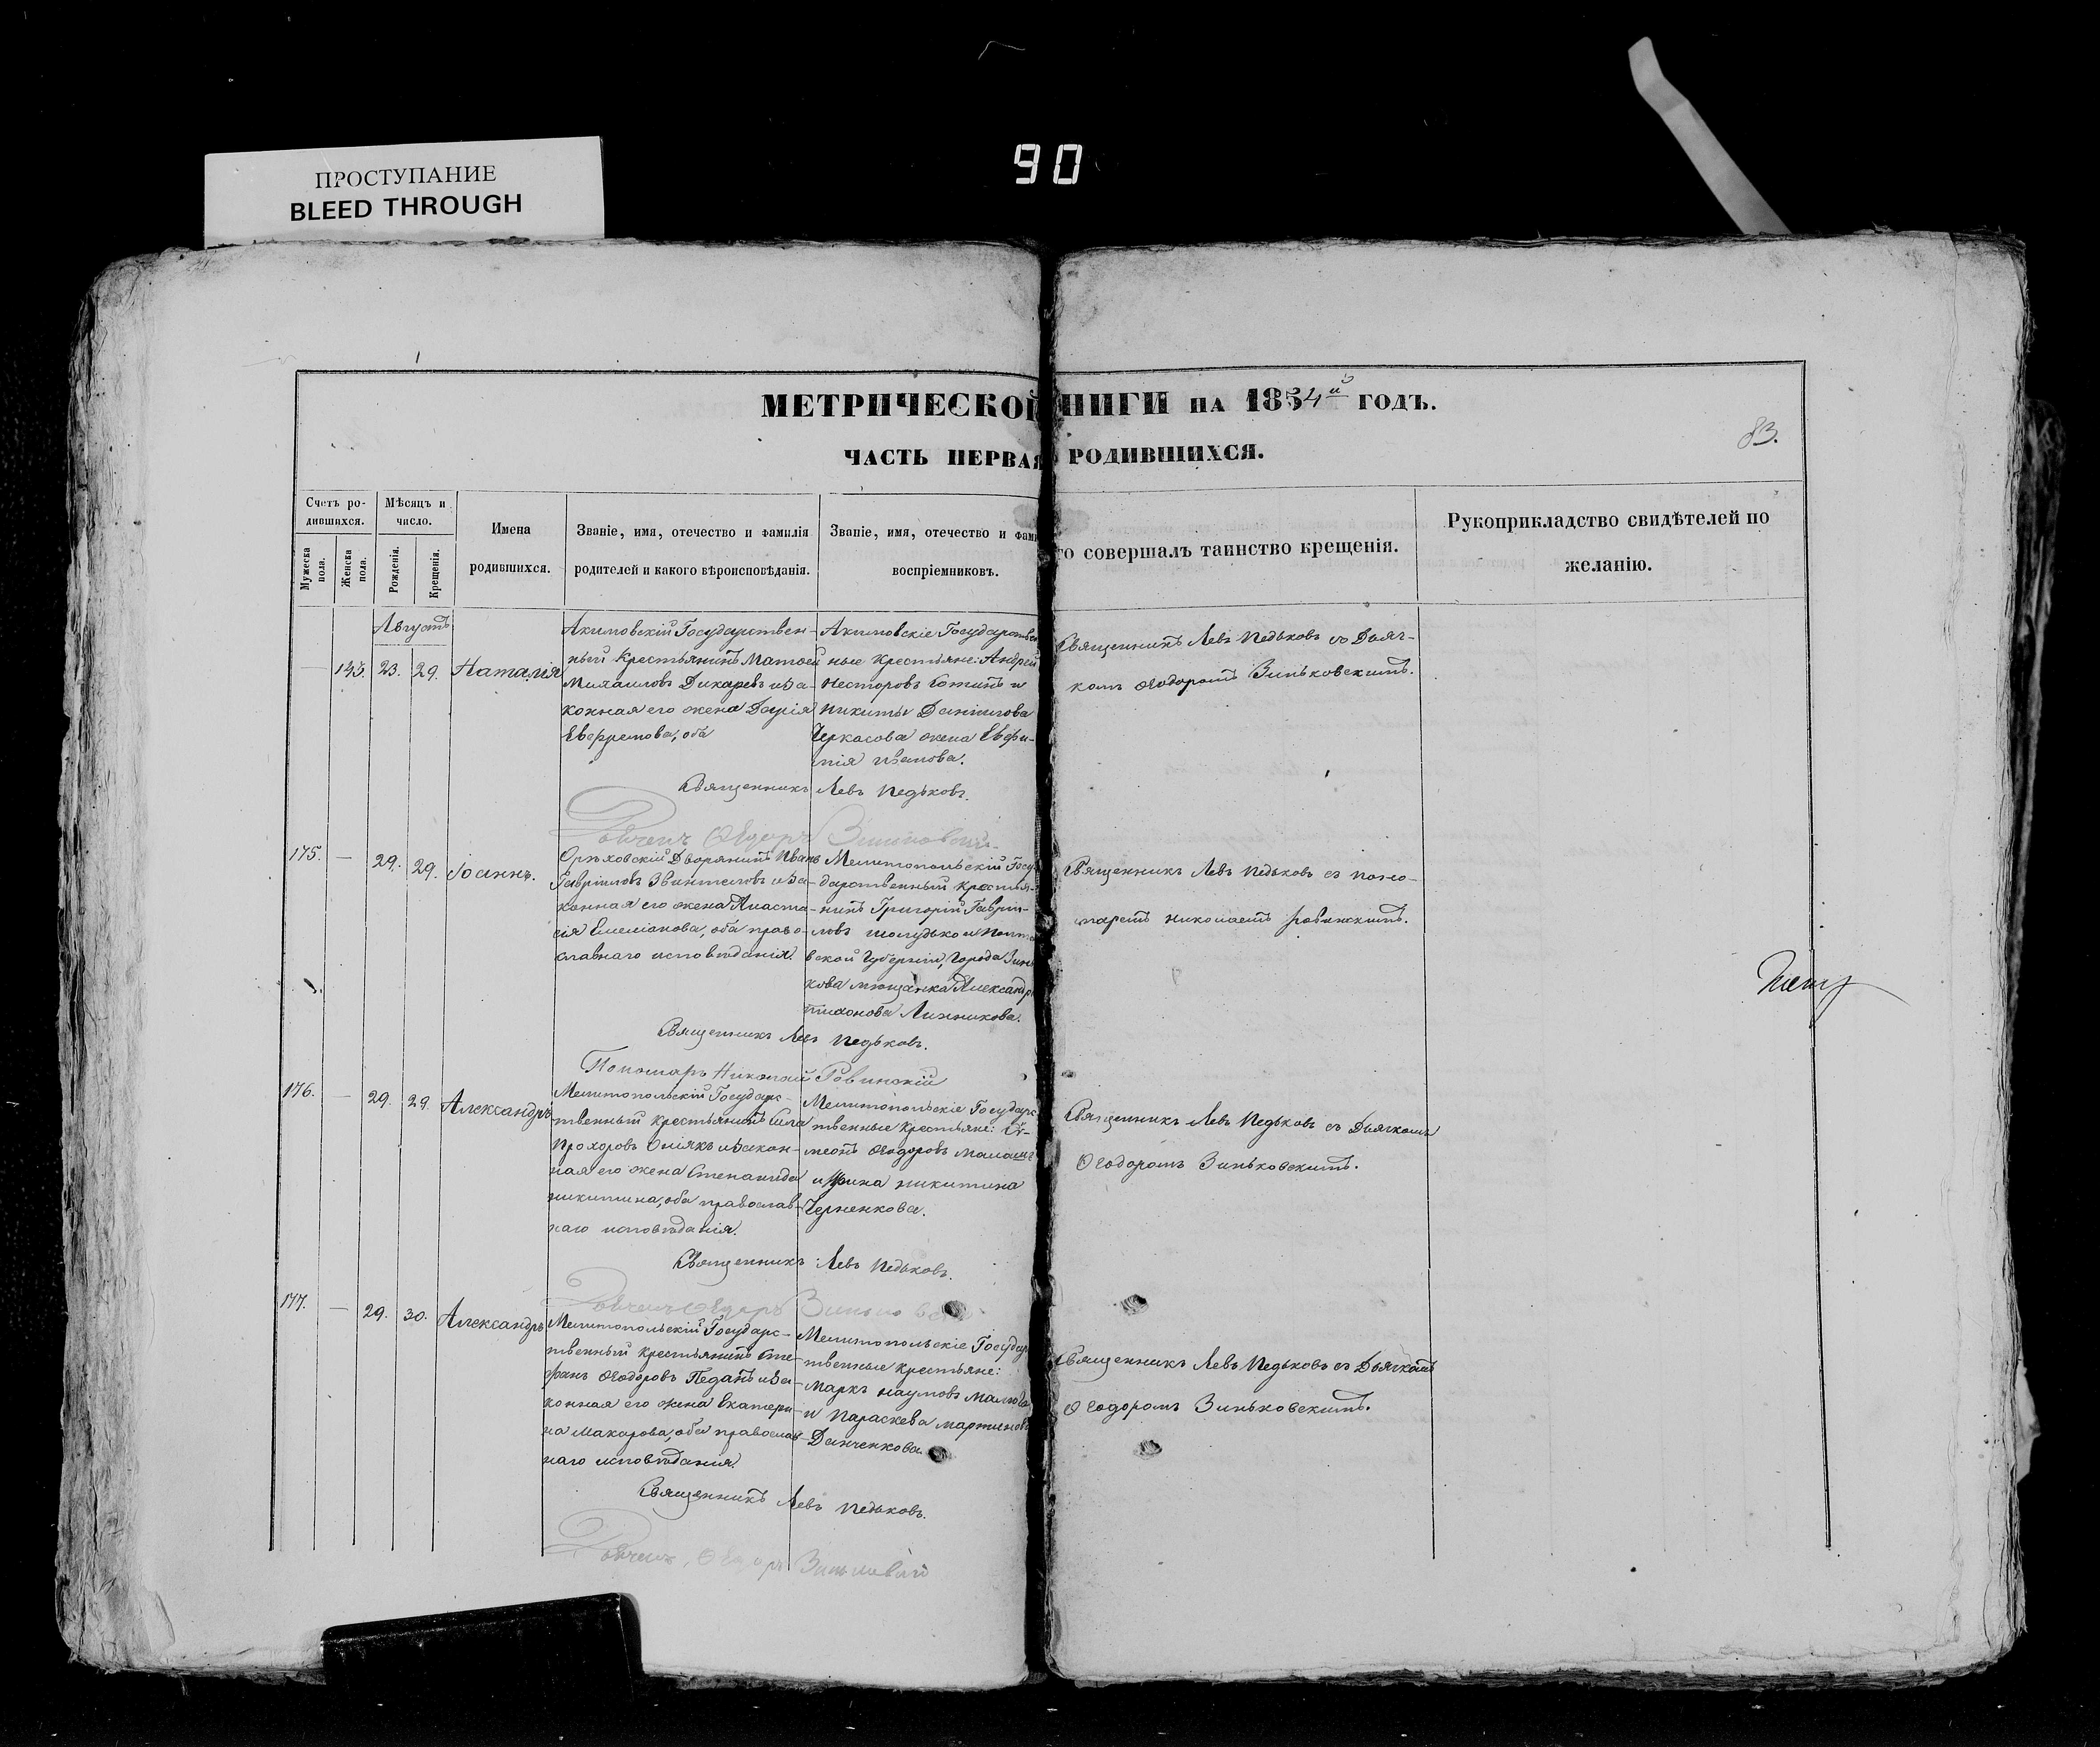 ПРОСТУПАНИЕ
BLEED THROUGH
90
МЕТРИЧЕСКОЙ НИГИ НА 1854й ГОДЪ.
83.
ЧАСТЬ ПЕРВАЯ РОДИВШИХСЯ.
Счетъ ро-
дившихся.
Мужеска пола.
Женска пола.
Мѣсяцъ и
число.
Рожденія.
Крещенія.
Имена
родившихся.
Званіе, имя, отечество и фамилія
родителей и какого вѣроисповѣданія.
Званіе, имя, отечество и фами
воспріемниковъ.
го совершалъ таинство крещенія.
Рукоприкладство свидѣтелей по
желанію.
Августъ
— 143. 23. 29. Наталія
Акимовскій Государствен-
ный Крестьянинъ Матвей
Михаиловъ Дикаревъ иЗа-
конная его жена Дарія
Евфремова, оба
Акимовскіе Государствен
ные Крестьяне: Андрей
Несторовъ и
Никиты Даніилова
Черкасова жена Евфи-
мія Иванова.
Священникъ Левъ Педьковъ со Дьяч-
комъ Ѳеодоромъ Зиньковскимъ.
Священникъ Левъ Педьковъ.
175. — 29. 29. Іоаннъ.
Орѣховскій Дворянинъ Иванъ
Гавріиловъ иЗа-
конная его жена Анаста-
сія Емеліанова, оба право-
славнаго исповѣданія.
Мелитопольскій Госу
дарственный Крестья-
нинъ Григорій Гаврі-
ловъ Шолудько и Полта
вской Губерніи, Города Зинь
кова мѣщанка Александра
Тихонова Линникова.
Священникъ Левъ Педьковъ съ Поно-
маремъ Николаемъ Ровинскимъ.
Священникъ Левъ Педьковъ.
Пономарь Николай Ровинскій
176. — 29. 29. Александръ
Мелитопольскій Государс-
твенный Крестьянинъ
Прохоровъ иЗакон-
ная его жена Степанида
Никитина, оба православ-
наго исповѣданія.
Мелитопольскіе Государс
твенные Крестьяне: Сѵ-
меонъ Ѳеодоровъ
и Ирина Никитина
Черненкова.
Священникъ Левъ Педьковъ съ Дьячкомъ
Ѳеодоромъ Зиньковскимъ.
Священникъ Левъ Педьковъ.
177. — 29. 30. Александръ
Мелитопольскій Государс-
твенный Крестьянинъ Сте-
фанъ Ѳеодоровъ Педанъ иЗа-
конная его жена Екатери-
на Макарова, оба православ-
наго исповѣданія.
Мелитопольскіе Государ
твенные Крестьяне:
Маркъ Наумовъ
и Параскева Мартинова
Данченкова.
Священникъ Левъ Педьковъ съ Дьячкомъ
Ѳеодоромъ Зиньковскимъ.
Священникъ Левъ Педьковъ.